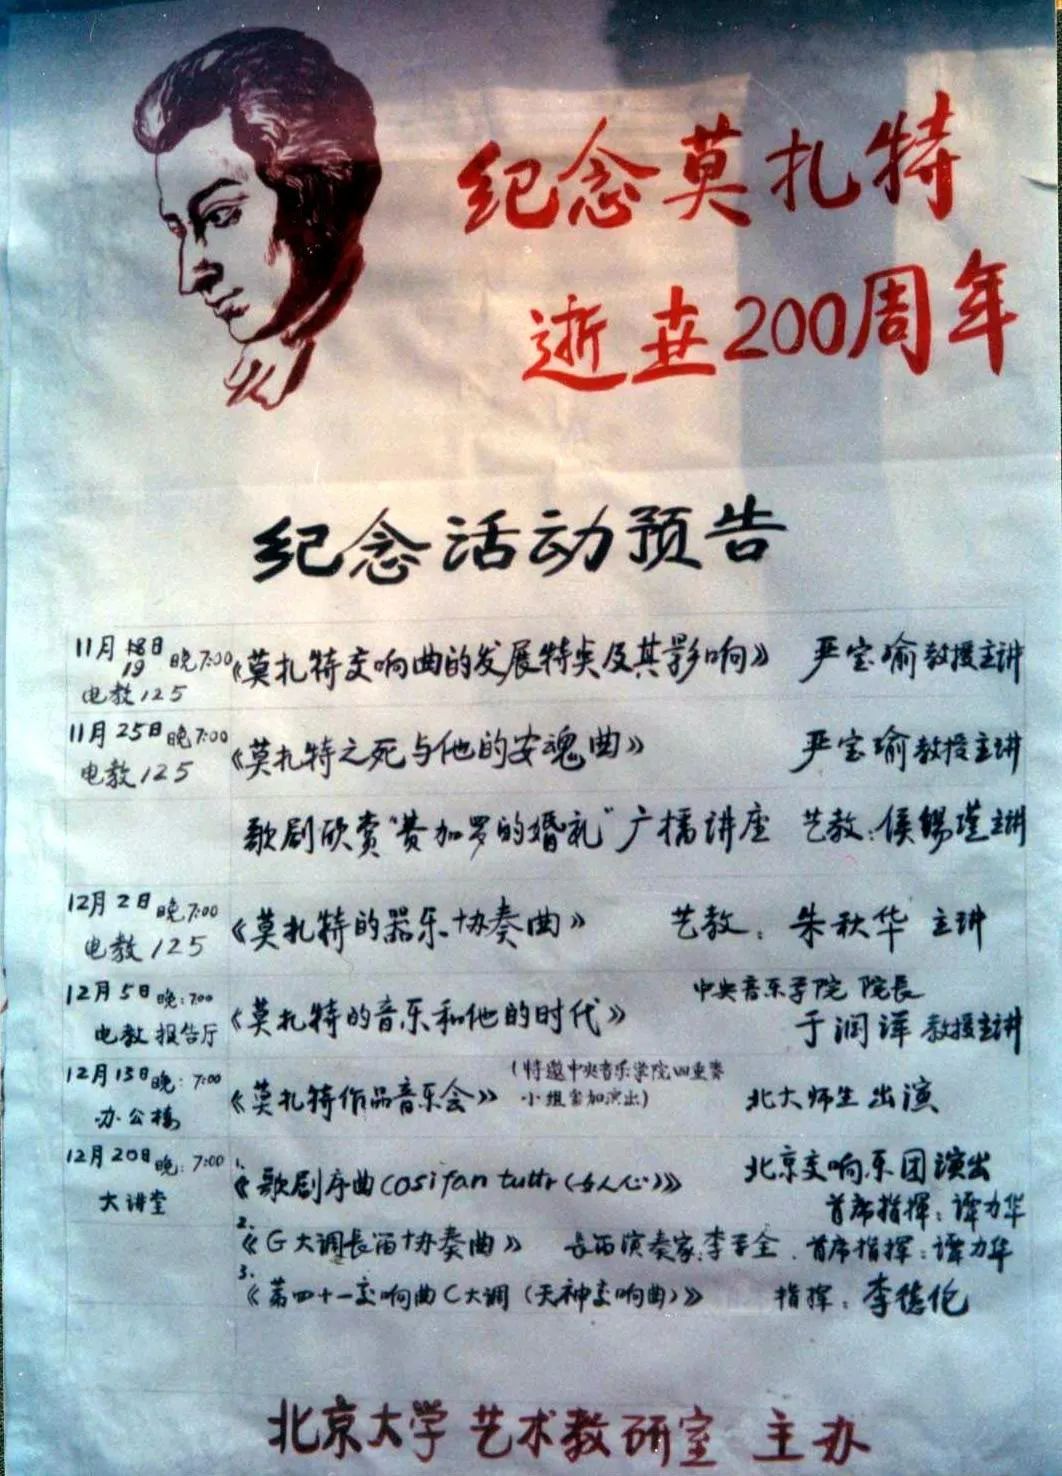 纪念莫扎特
逝世200周年
纪念活动预告
11月18日 晚7:00 《莫扎特交响曲的发展特类及其影响》 严宝瑜教授主讲
19
电教125
11月25日 晚7:00 《莫扎特之死与他的安魂曲》 严宝瑜教授主讲
电教125
歌剧欣赏"费加罗的婚礼"广播讲座 艺教:侯锡瑾主讲
12月2日 晚7:00 《莫扎特的器乐协奏曲》 艺教:朱秋华 主讲
电教125
12月5日 晚:7:00 《莫扎特的音乐和他的时代》 中央音乐学院 院長
电教 报告厅 于润洋 教授主讲
12月13日 晚:7:00 《莫扎特作品音乐会》 (特邀中央音乐学院四重奏
小组参加演出) 北大师生出演
办公楼
12月20日 晚:7:00 1.《歌剧序曲cosi fan tuttr(女人心)》 北京交响乐团演出
大讲堂 首席指挥:谭力华
2.《G大调長笛协奏曲》 长笛演奏家:李学全.首席指挥:谭力华
3.《第四十一交响曲C大调(天神交响曲)》 指挥:李德伦
北京大学艺术教研室 主办